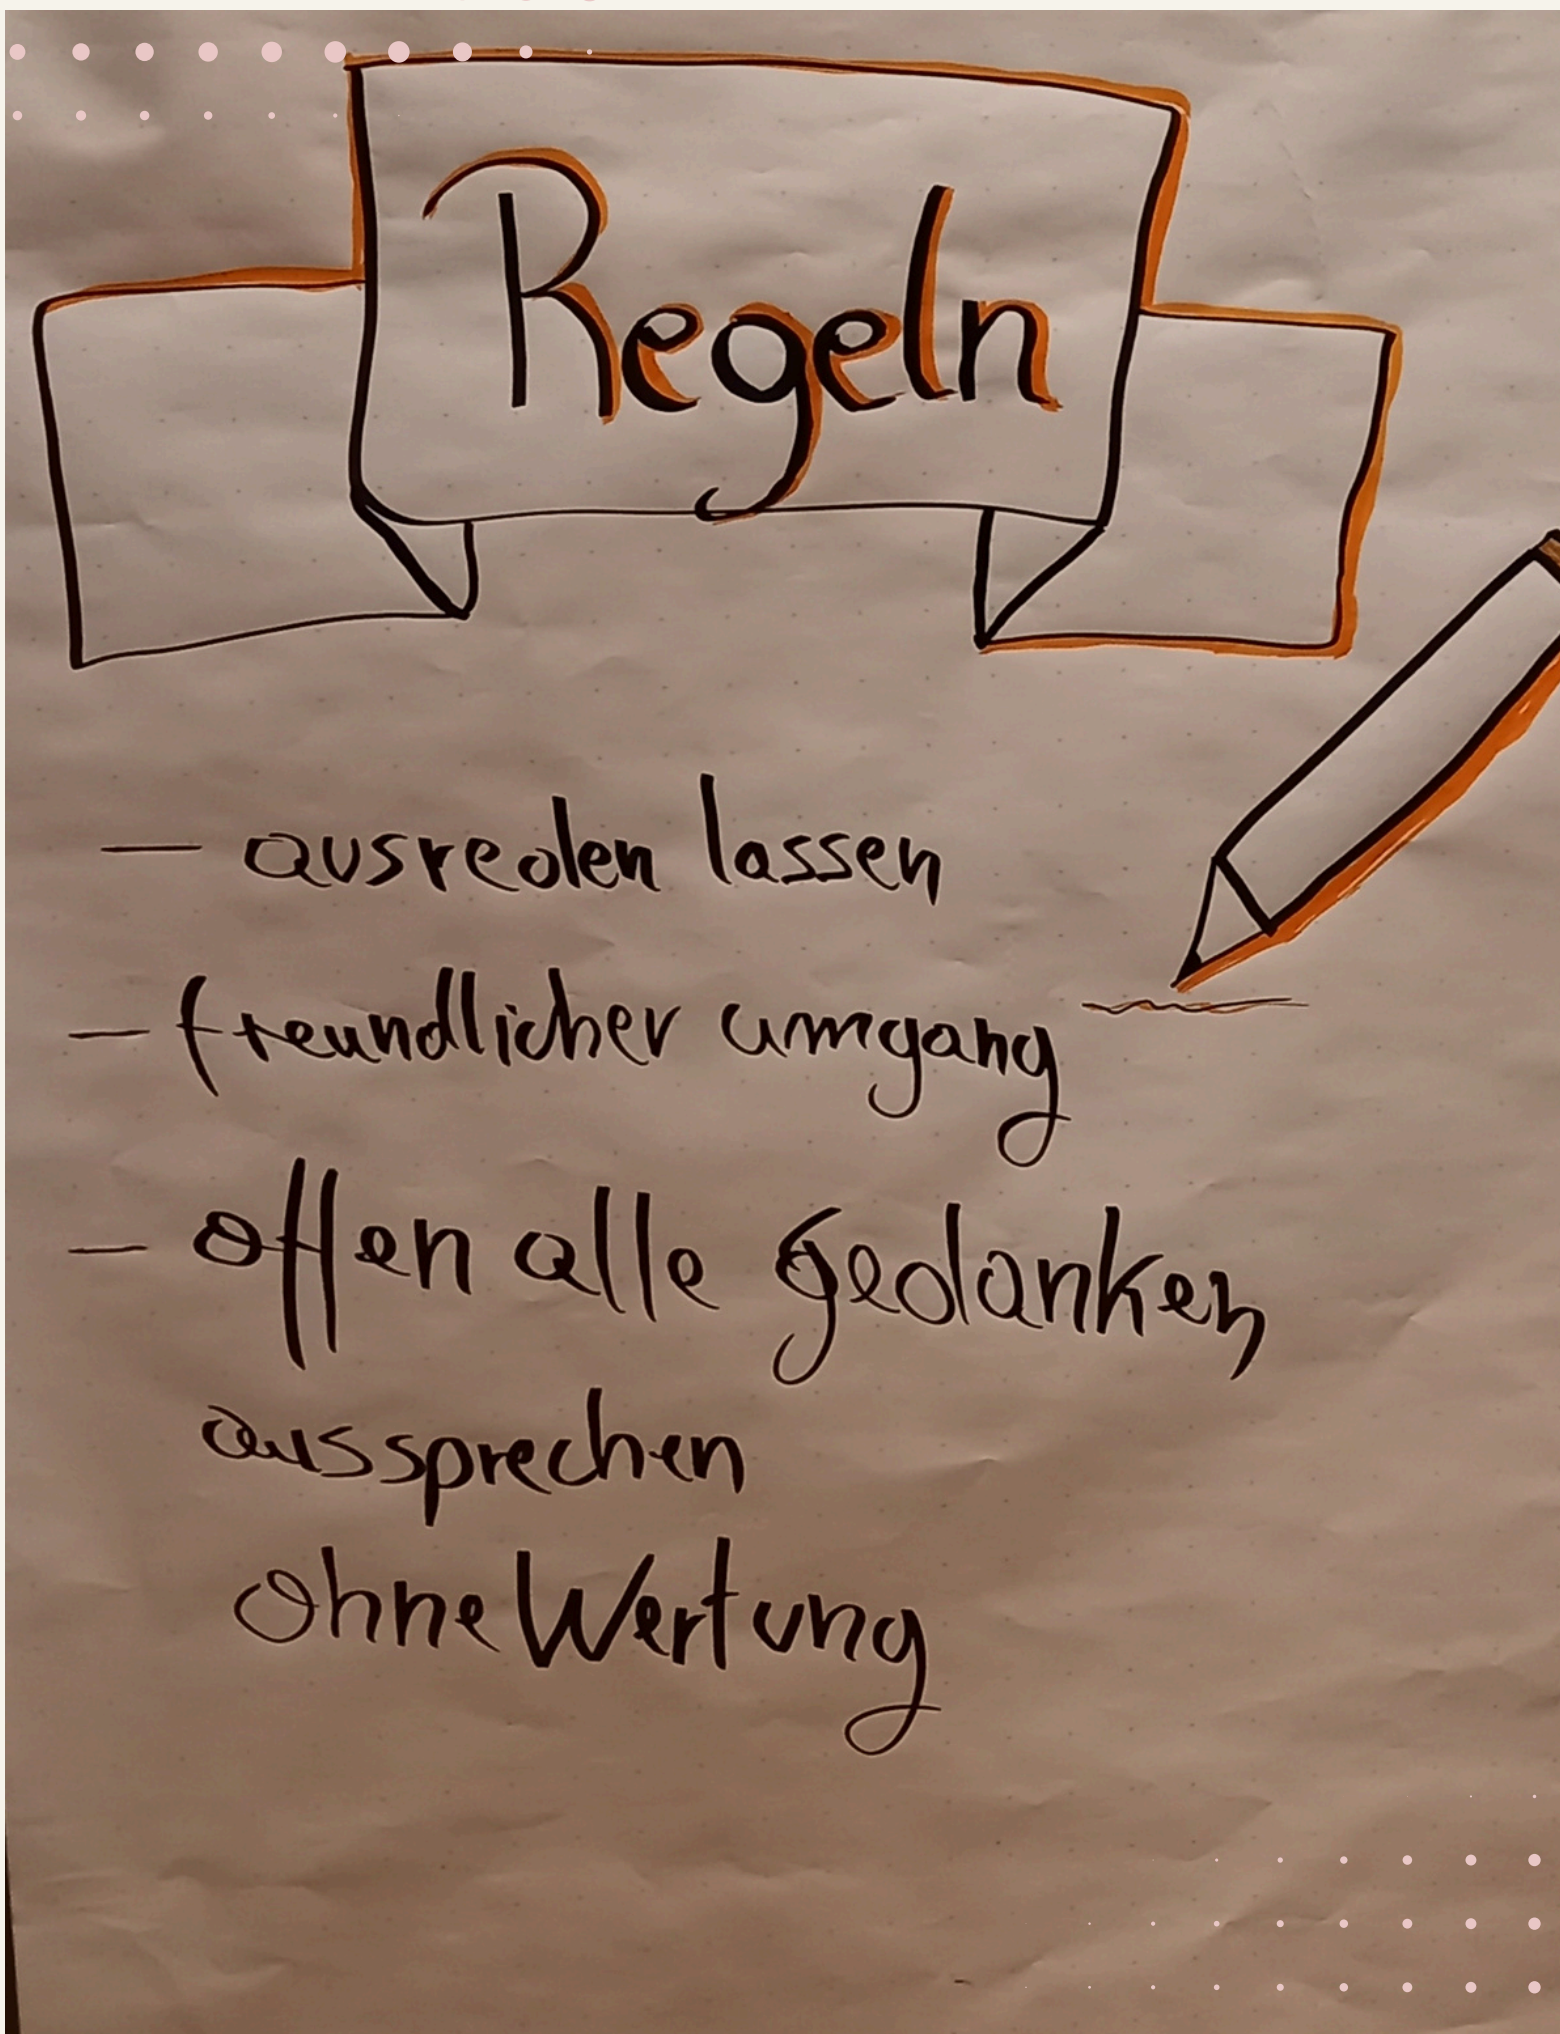 Regeln
- ausreden lassen
- freundlicher umgang
- offen alle gedanken
aussprechen
ohne Wertung